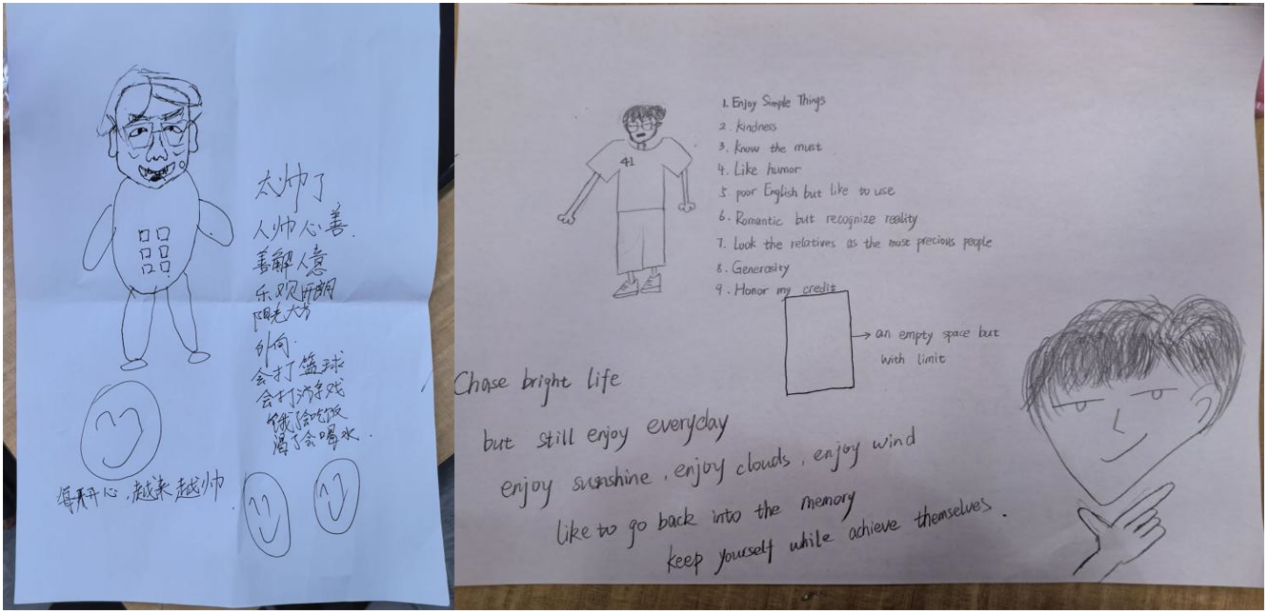 太帅了
人帅心善.
善解人意
乐观开朗
阳光大方
外向.
会打篮球
会打游戏
饿了会吃饭
渴了会喝水.
每天开心,越来越帅.
41
1. Enjoy Simple Things
2. kindness
3. know the must
4. Like humor
5. poor English but like to use
6. Romantic but recognize reality
7. Look the relatives as the most precious people
8. Generosity
9. Honor my credit
an empty space but
with limit
Chase bright life
but still enjoy everyday
enjoy sunshine, enjoy clouds, enjoy wind
like to go back into the memory
keep yourself while achieve themselves.